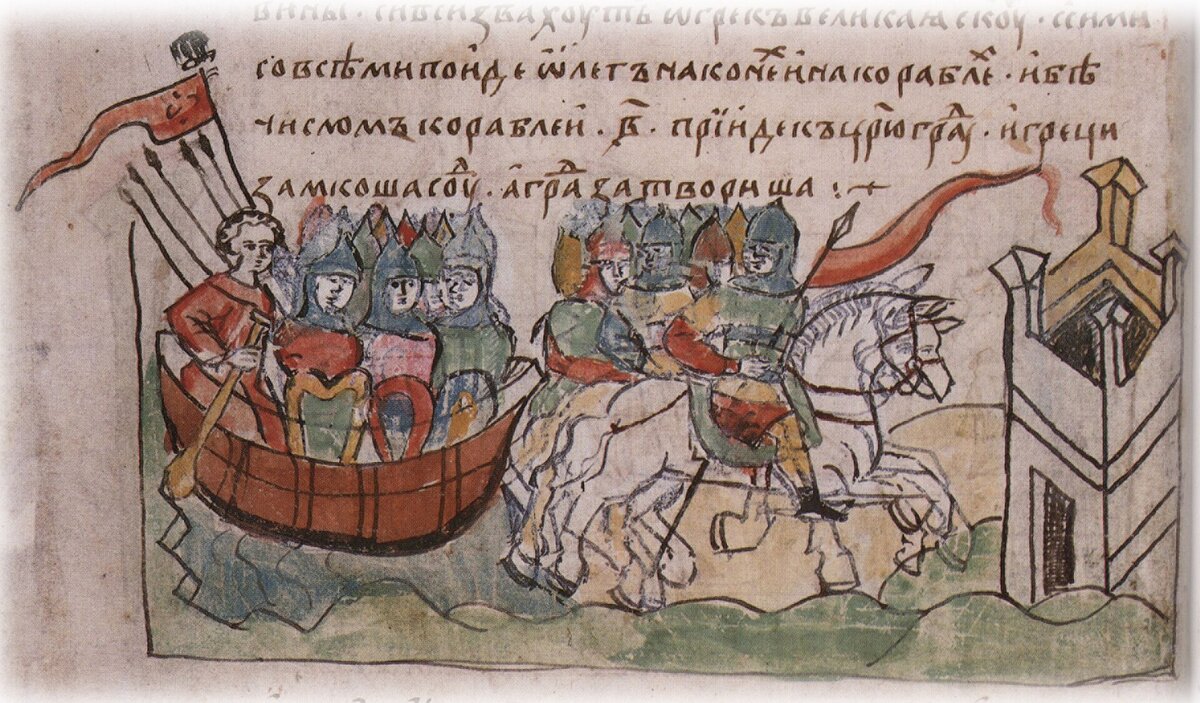 вины · си вси звахоуть ѿ грекъ великаꙗ скоуⷴ · с сими
со всѣми поиде ѿлегъ на конеⷯ и на кораблеⷯ · и бѣ
числомъ кораблеи · в҃ · прїиде къ цр҃юграⷣу · и греци
замкоша соуⷣ · а граⷣ затвориша :